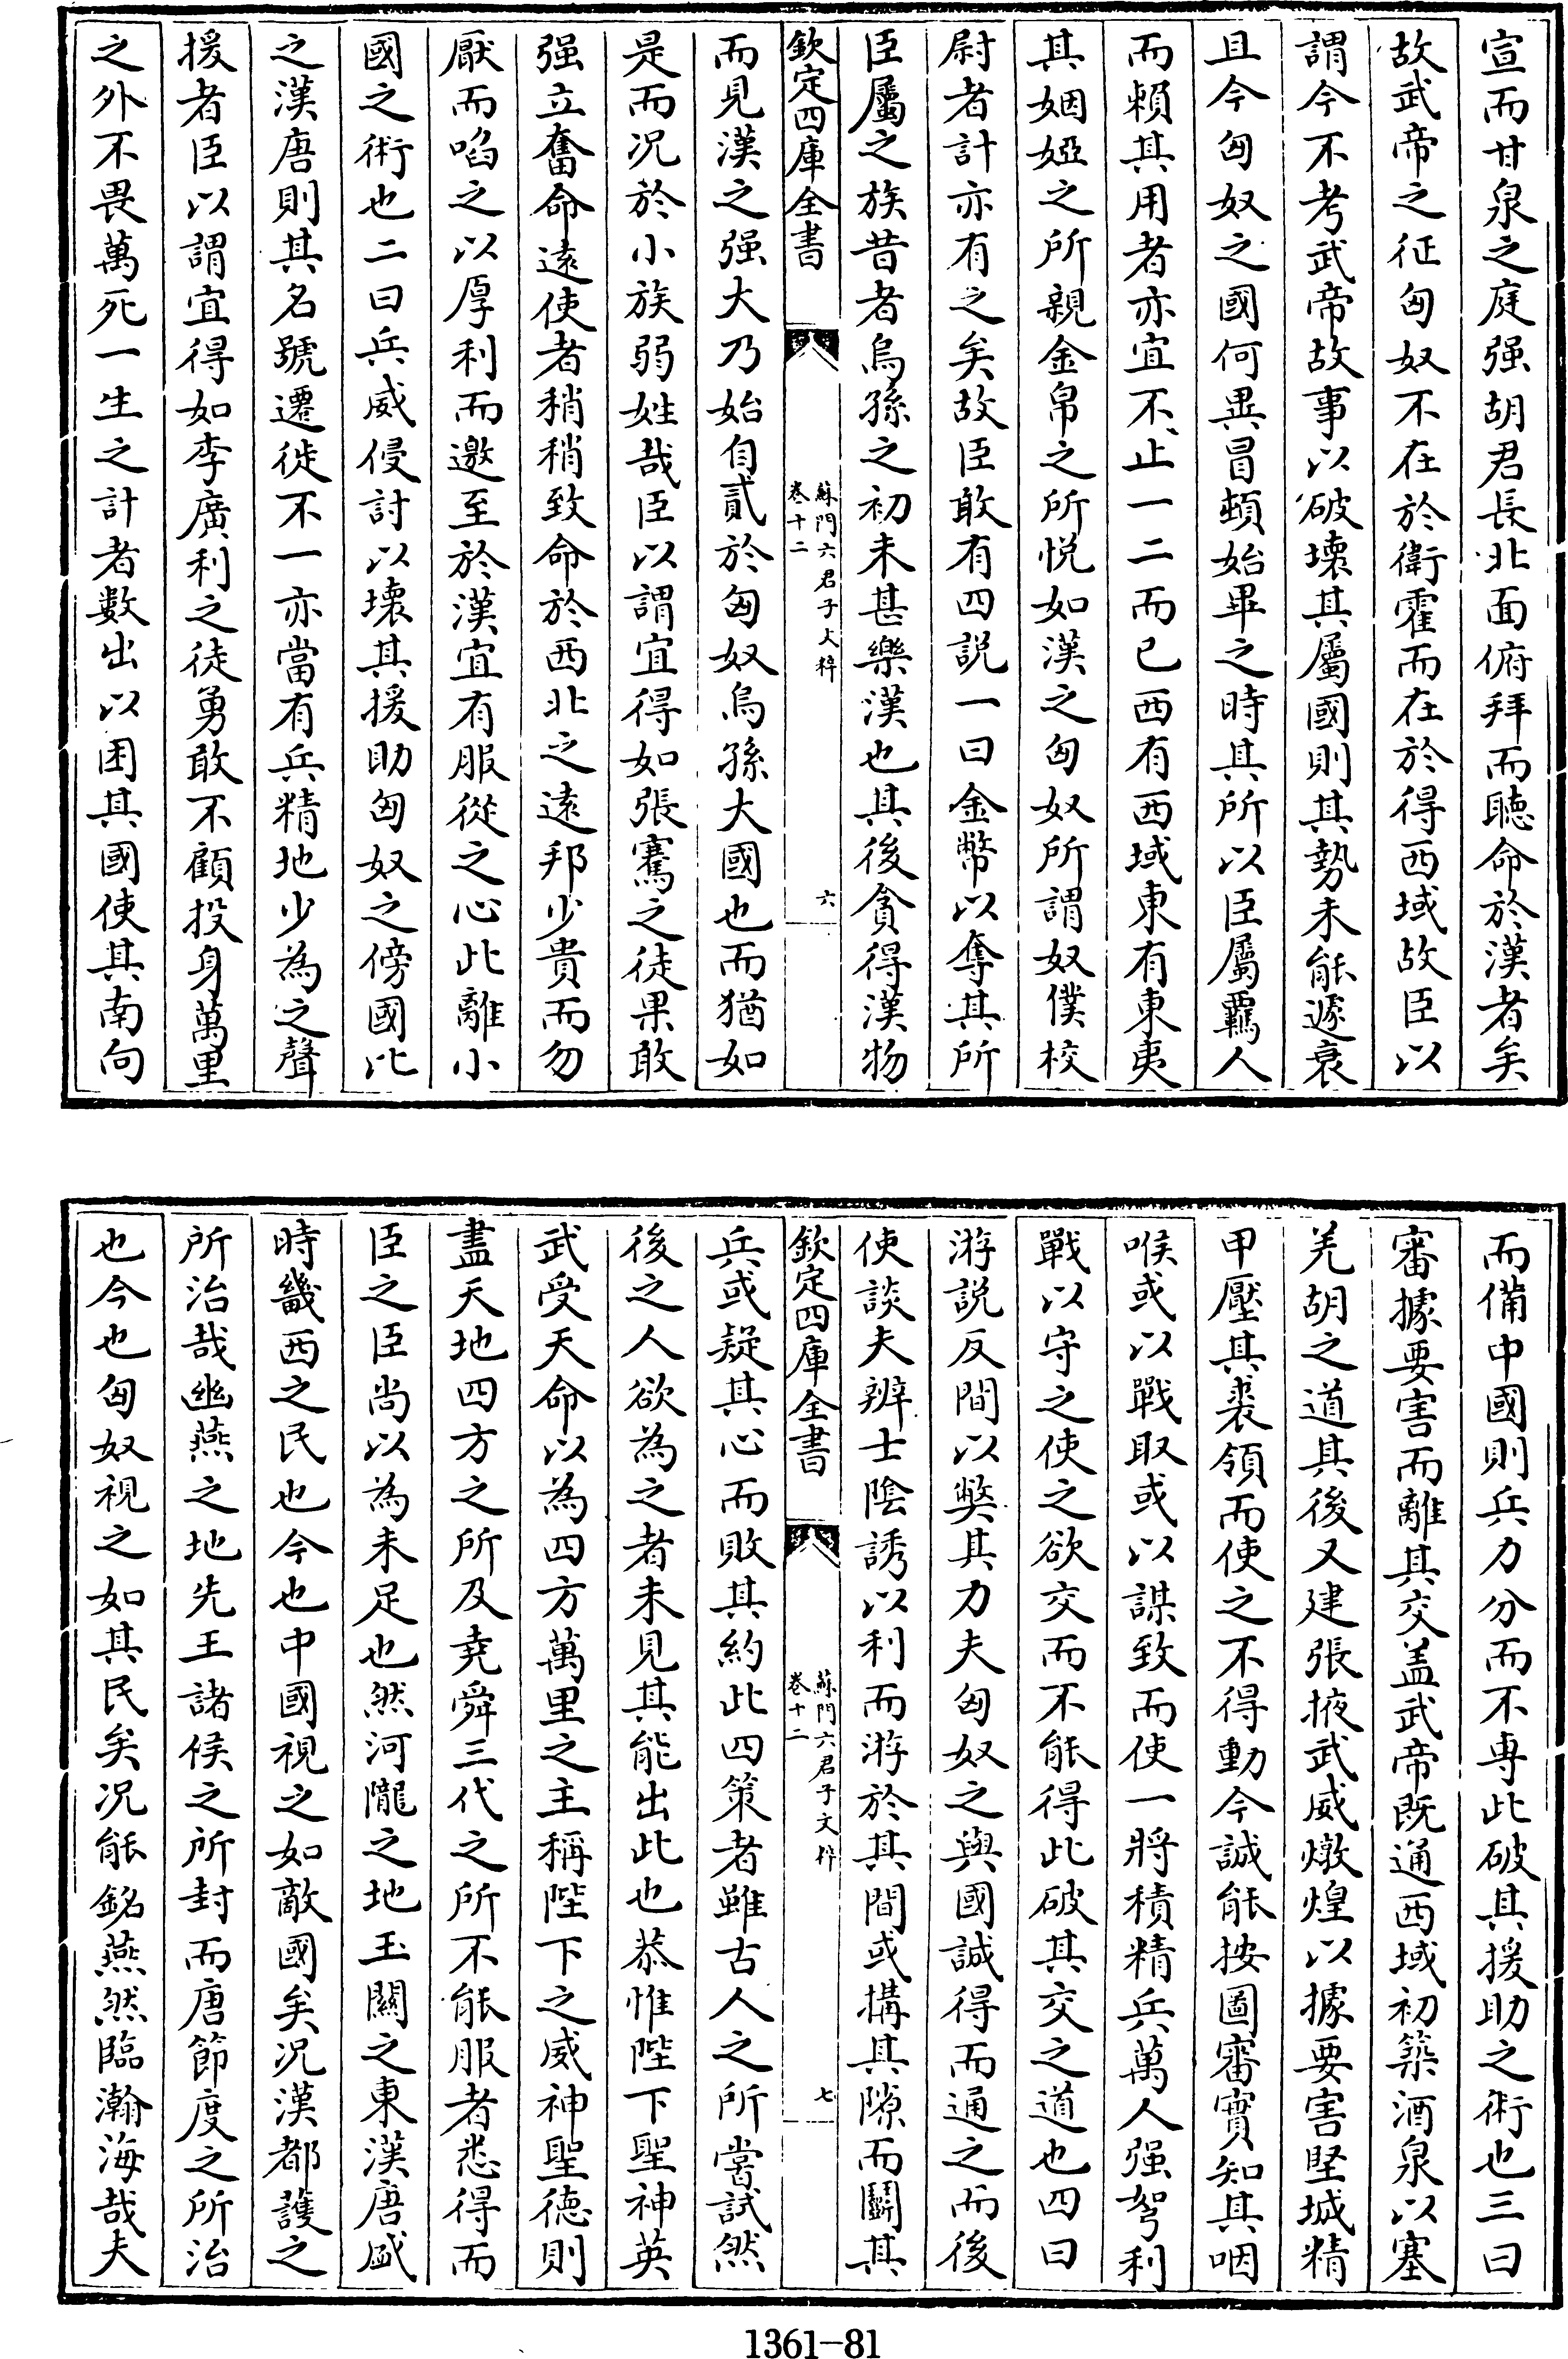 宣而甘泉之庭强胡君長北面俯拜而聽命於漢者矣
故武帝之征匈奴不在於衛霍而在於得西域故臣以
謂今不考武帝故事以破壞其屬國則其勢未能遽衰
且今匈奴之國何異冒頓始畢之時其所以臣屬覊人
而賴其用者亦宜不止一二而已西有西域東有東夷
其姻婭之所親金帛之所悦如漢之匈奴所謂奴僕校
尉者計亦有之矣故臣敢有四説一曰金幣以奪其所
臣屬之族昔者烏孫之初未甚樂漢也其後貪得漢物
欽定四庫全書
蘇門六君子文粹
卷十二
六
而見漢之强大乃始自貳於匈奴烏孫大國也而猶如
是而况於小族弱姓哉臣以謂宜得如張騫之徒果敢
强立奮命遠使者稍稍致命於西北之遠邦少貴而勿
厭而啗之以厚利而邀至於漢宜有服從之心此離小
國之術也二曰兵威侵討以壞其援助匈奴之傍國比
之漢唐則其名號遷徙不一亦當有兵精地少為之聲
援者臣以謂宜得如李廣利之徒勇敢不顧投身萬里
之外不畏萬死一生之計者數出以困其國使其南向
而備中國則兵力分而不専此破其援助之術也三曰
審據要害而離其交盖武帝既通西域初築酒泉以塞
羌胡之道其後又建張掖武威燉煌以據要害堅城精
甲壓其裘領而使之不得動今誠能按圖審實知其咽
喉或以戰取或以謀致而使一將積精兵萬人强弩利
戰以守之使之欲交而不能得此破其交之道也四曰
游説反間以獘其力夫匈奴之與國誠得而通之而後
使談夫辨士陰誘以利而游於其間或搆其隙而鬭其
欽定四庫全書
蘇門六君子文粹
卷十二
七
兵或疑其心而敗其約此四策者雖古人之所嘗試然
後之人欲為之者未見其能出此也恭惟陛下聖神英
武受天命以為四方萬里之主稱陛下之威神聖徳則
盡天地四方之所及堯舜三代之所不能服者悉得而
臣之臣尚以為未足也然河隴之地玉關之東漢唐盛
時畿西之民也今也中國視之如敵國矣况漢都護之
所治哉幽燕之地先王諸侯之所封而唐節度之所治
也今也匈奴視之如其民矣况能銘燕然臨瀚海哉夫
1361-81